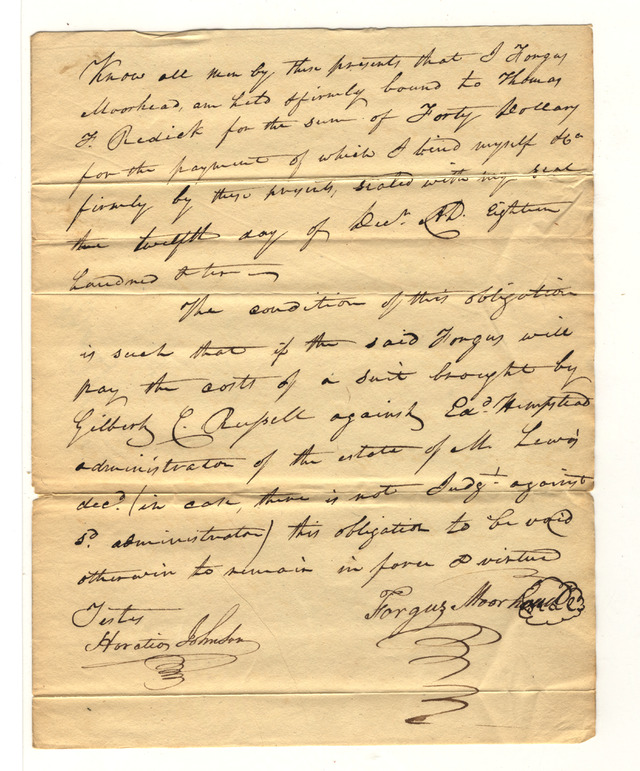 Know all men by these presents that I Forgus
Moorhead, am held & firmly bound to Thomas
F. Redick for the sum of Forty Dollars
for the payment of which I bind myself &a
firmly by these presents, sealed with my seal
this twelfth day of Decr. A.D. Eighteen
hundred & ten
The condition of this obligation
is such that if the said Forgus will
pay the costs of a suit brought by
Gilbert C. Russell against Edd. Hempstead
administrator of the estate of M. Lewis
decd. (in case, there is not Judgt. against
sd. administrator) this obligation to be void
otherwise to remain in force & virtue
Testes
Forgus Moorhead
Horatio Johnson